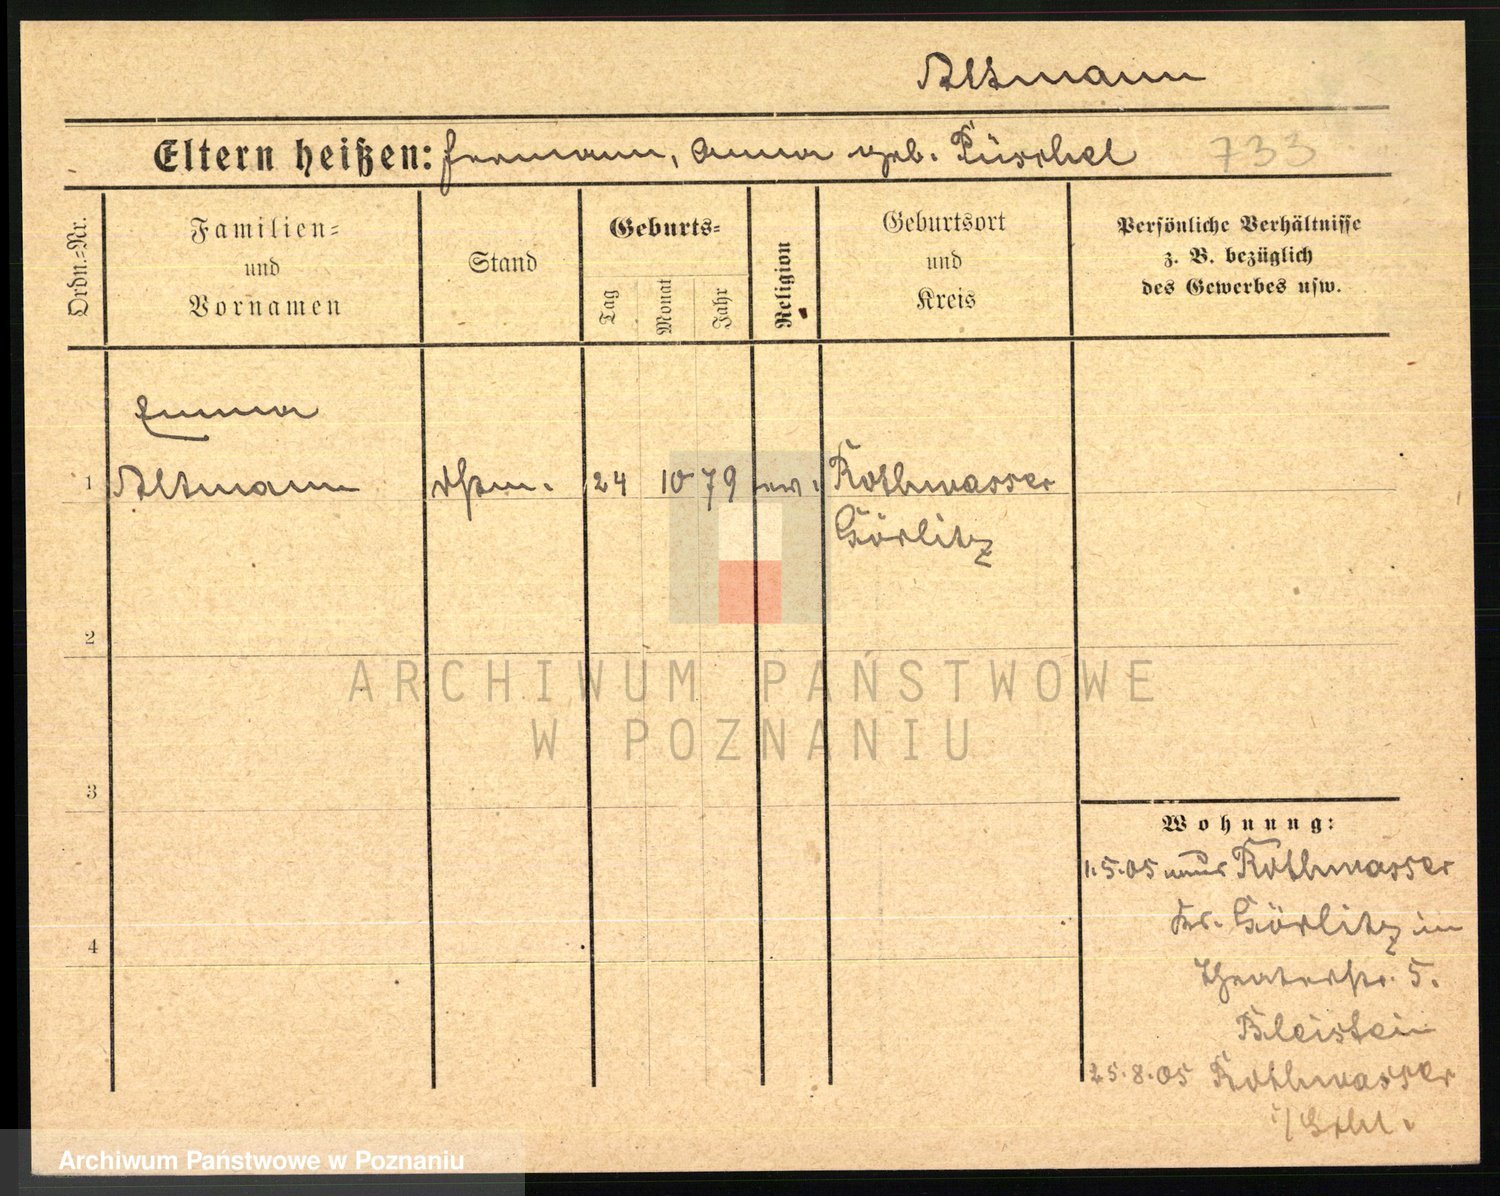 Altmann
Eltern heißen: Hermann, Anna geb. Püschel 733
Ordn.-Nr.
Familien-
und
Vornamen
Stand
Geburts-
Tag
Monat
Jahr
Religion
Geburtsort
und
Kreis
Persönliche Verhältnisse
z. B. bezüglich
des Gewerbes usw.
Emma
1 Altmann 24 10 79 ev. Rothwasser
Görlitz
2
ARCHIWUM PAŃSTWOWE
W POZNANIU
3
Wohnung:
1.5.05 aus Rothwasser
Kr. Görlitz in
4
Theaterstr. 5.
Bleistein
25.8.05 Rothwasser
i/Schl.
Archiwum Państwowe w Poznaniu